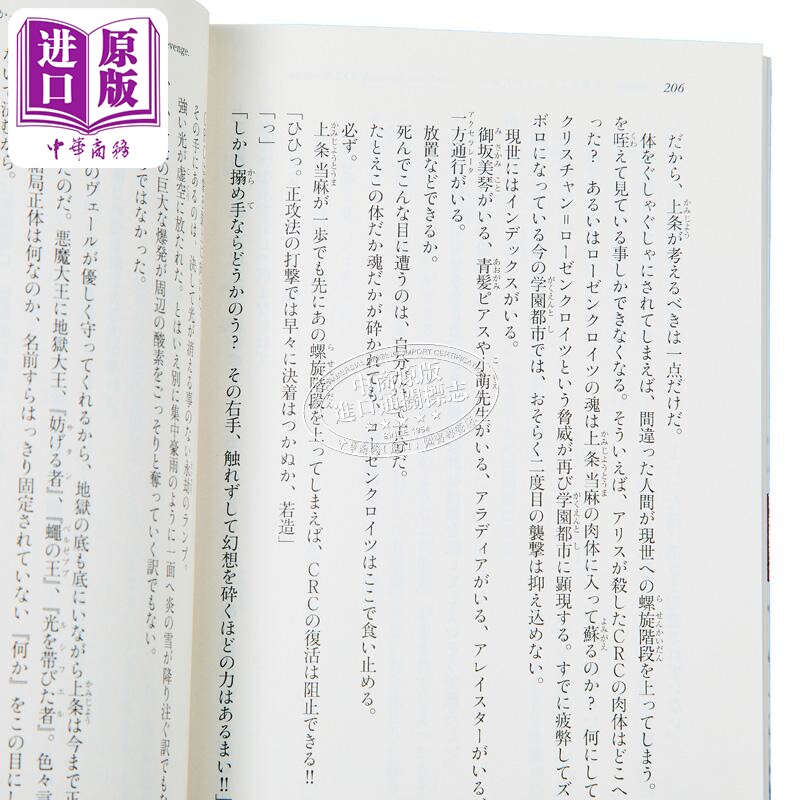 進口
原版
中華商務
206
だから、上条が考えるべきは一点だけだ。
体をぐしゃぐしゃにされてしまえば、間違った人間が現世への螺旋階段を上ってしまう。
を咥えて見ている事しかできなくなる。そういえば、アリスが殺したＣＲＣの肉体はどこへ
った？　あるいはローゼンクロイツの魂は上条当麻の肉体に入って蘇るのか？　何にして
クリスチャン＝ローゼンクロイツという脅威が再び学園都市に顕現する。すでに疲弊してズ
ボロになっている今の学園都市では、おそらく二度目の襲撃は抑え込めない。
現世にはインデックスがいる。
御坂美琴がいる、青髪ピアスや小萌先生がいる、アラディアがいる、アレイスターがいる、
一方通行がいる。
放置などできるか。
死んでこんな目に遭うのは、自分
たとえこの体だか魂だかが砕かれても、ローゼンクロイツはここで食い止める。
必ず。
上条当麻が一歩でも先にあの螺旋階段を上ってしまえば、ＣＲＣの復活は阻止できる!!
「ひひっ。正攻法の打撃では早々に決着はつかぬか、若造」
「っ」
「しかし搦め手ならどうかのう？　その右手、触れずして幻想を砕くほどの力はあるまい!!」
その手にあるのは、決して光が消える事のない永劫のランプ。
強い光が虚空に放たれた。とはいえ別に集中豪雨のように一面へ炎の雪が降り注ぐ訳でもな
の巨大な爆発が周辺の酸素をごっそりと奪っていく訳でもない。
ではなかった。
のヴェールが優しく守ってくれるから、地獄の底も底にいながら上条は今まで正
たのだ。悪魔大王に地獄大王、『妨げる者』、『蠅の王』、『光を帯びた者』。色々言
結局正体は何なのか、名前すらはっきり固定されていない『何か』をこの目にし
いて済むから。
venge.
中商原版
進口通關標志